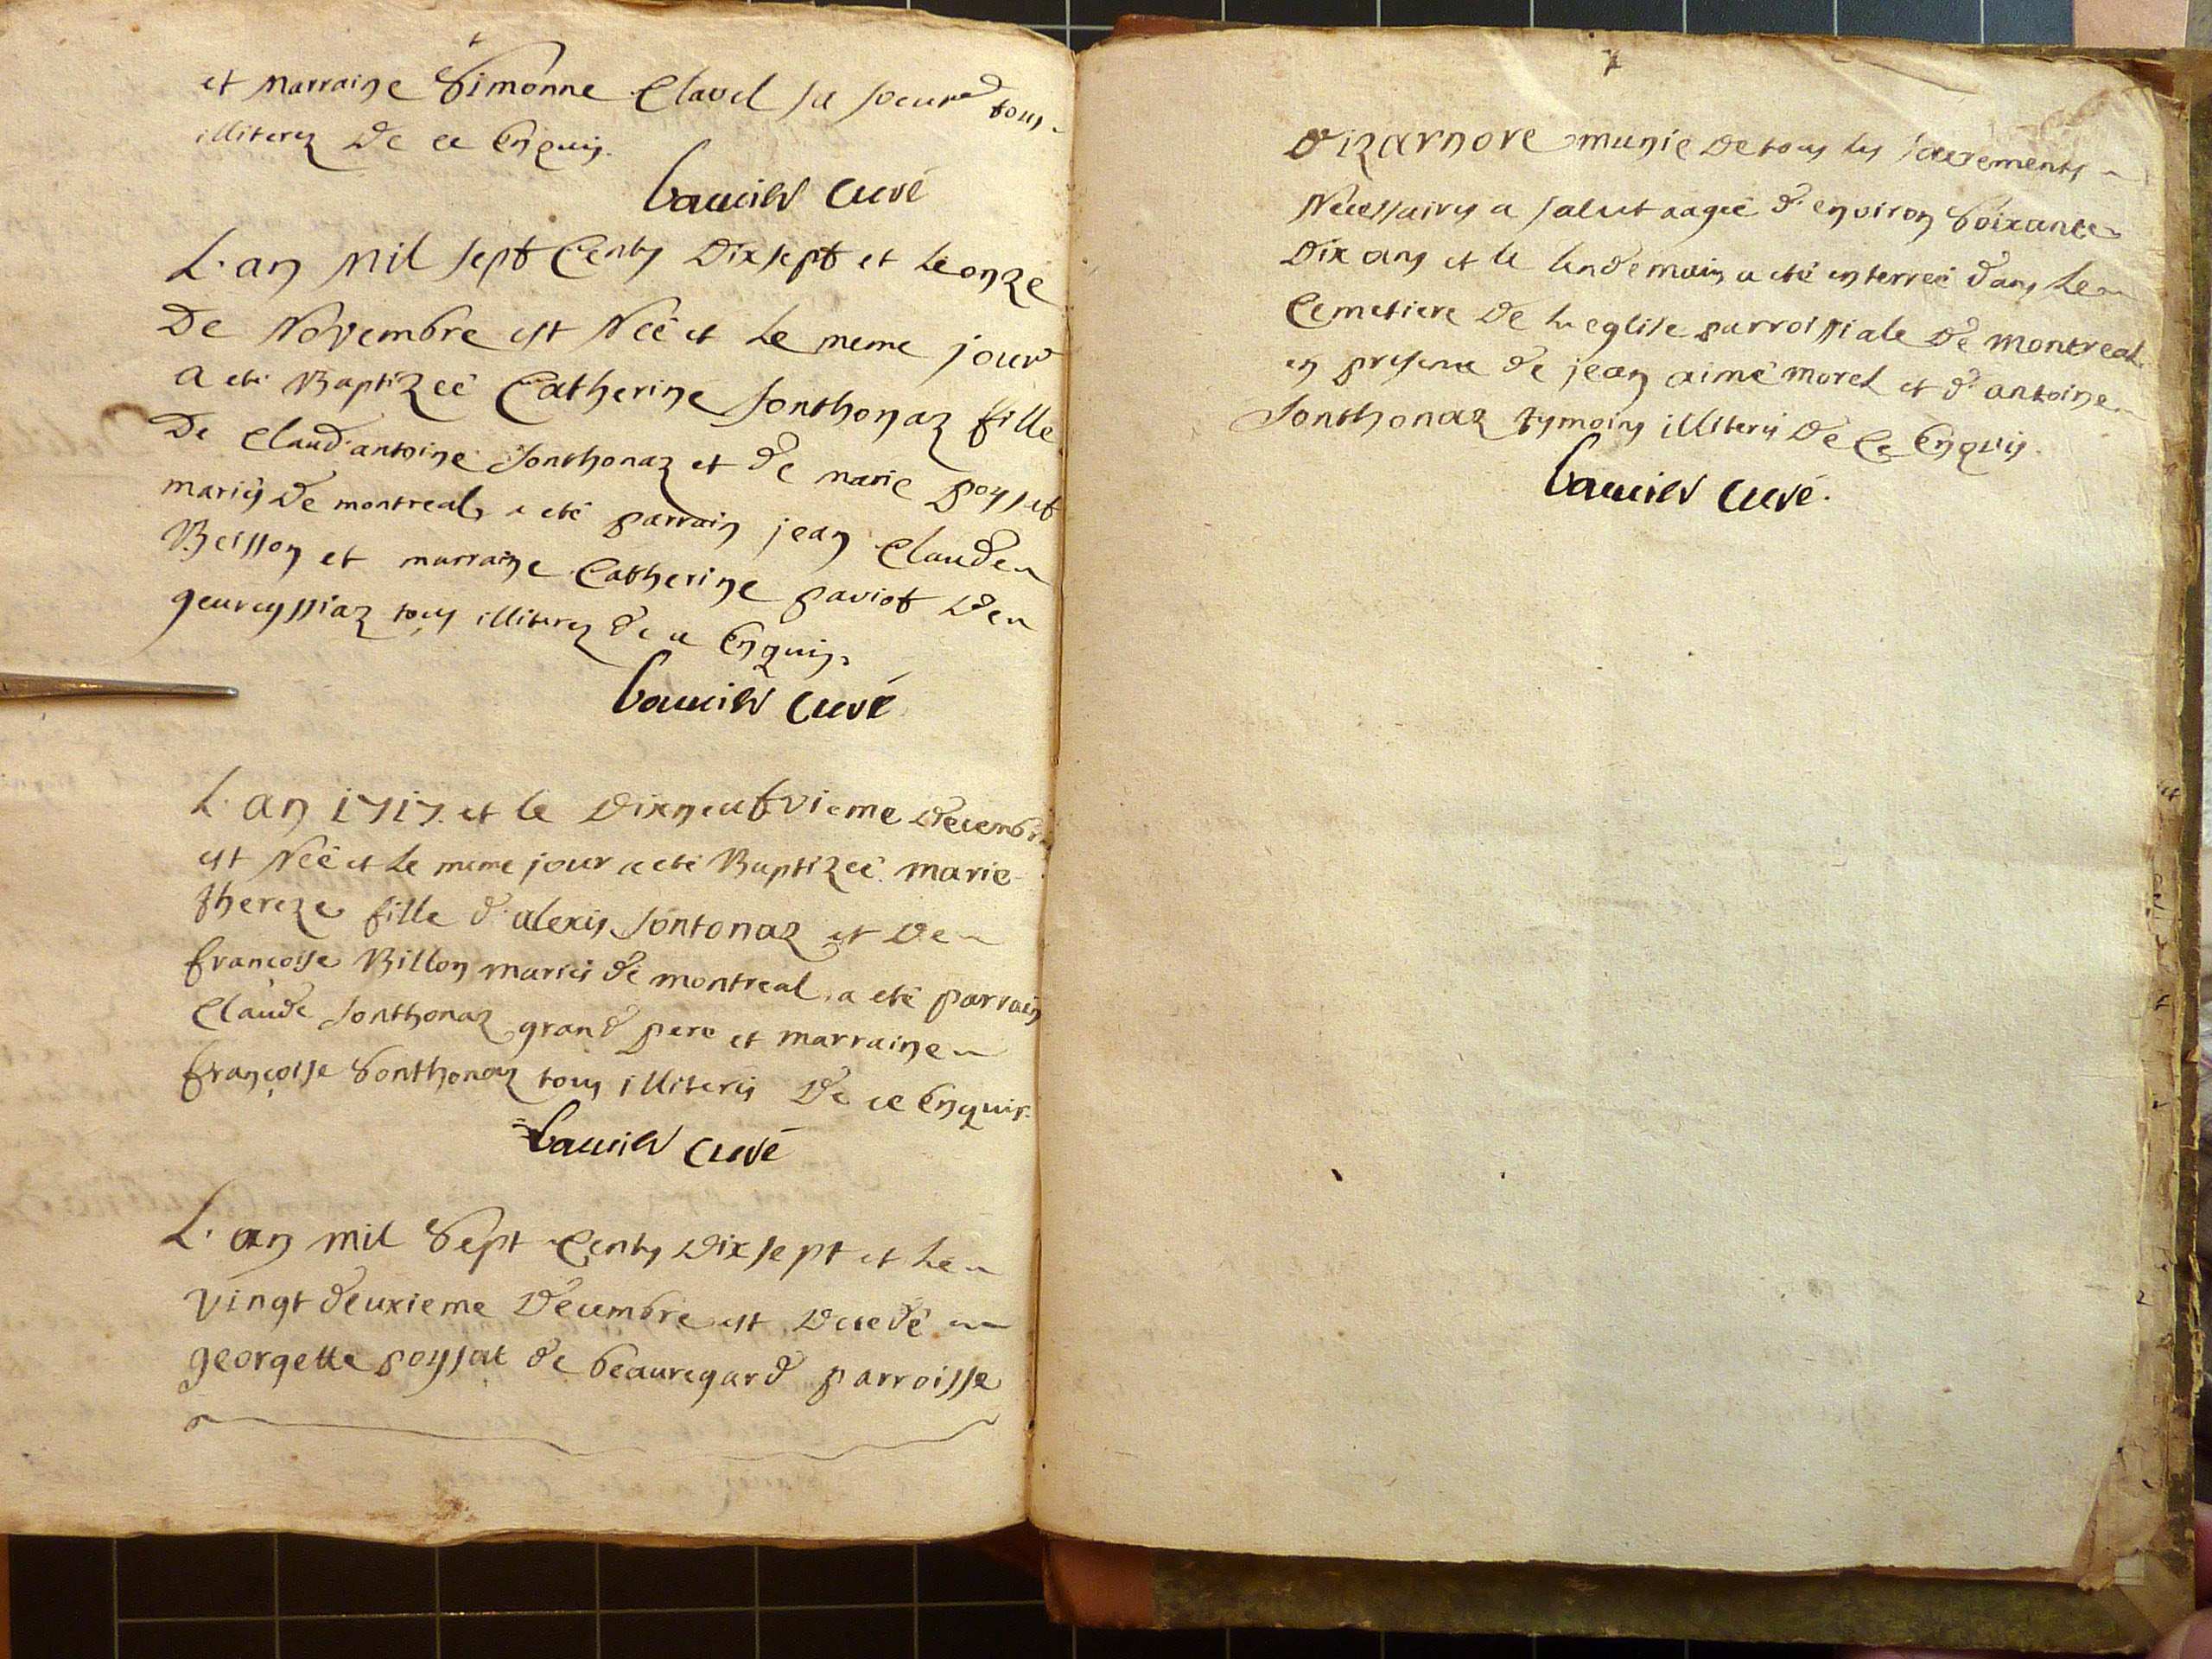 et marraine Simonne Clavel sa soeur tous
illiterez De ce Enquis.
curé
L'an mil sept Cents Dixsept et le onze
De Novembre est Néé et le meme jour
a eté Baptizéé Catherine sonthonaz fille
De Claud'antoine sonthonaz et de marie poysat
mariés De montreal, a eté parrain jean Claude
Beisson et marraine Catherine paviot De
geureyssiaz tous illiterez de ce Enquis.
curé
L'an 1717. et le Dixneufvieme Decembre
est Néé et le meme jour a eté Baptizéé marie
thereze fille d'alexis sontonaz et De
francoise Billon mariés de montreal, a eté parrain
Claude sonthonaz grand pere et marraine
françoise Sonthonaz tous illiterés De ce Enquis.
curé
L'an mil Sept Cents Dixsept et le
vingt deuxieme Decembre est Decedé
georgette poysat de beauregard parroisse
d'izarnore munie De tous les sacrements
Necessaires a salut aagéé d'environ Soixante
Dix ans et le lendemain a eté enterréé dans le
Cemetiere De l'eglise parroissiale De montreal
en presence de jean aimé morel et d'antoine
sonthonaz tymoins illiterés De Ce Enquis.
curé.